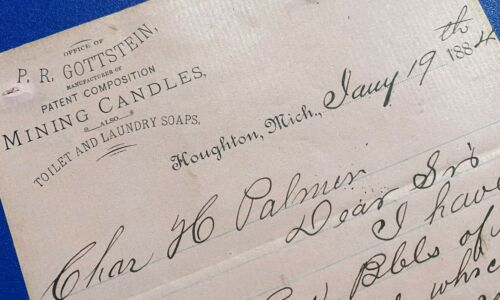 OFFICE OF
P. R. GOTTSTEIN,
MANUFACTURER OF
PATENT COMPOSITION
MINING CANDLES,
ALSO
TOILET AND LAUNDRY SOAPS,
Houghton, Mich., Jany 19th 1884
Char H Palmer
Dear Sir
I have
Bbls of